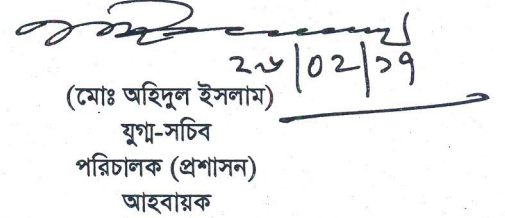 ২৬|০২|১৭
(মোঃ অহিদুল ইসলাম)
যুগ্ম-সচিব
পরিচালক (প্রশাসন)
আহবায়ক